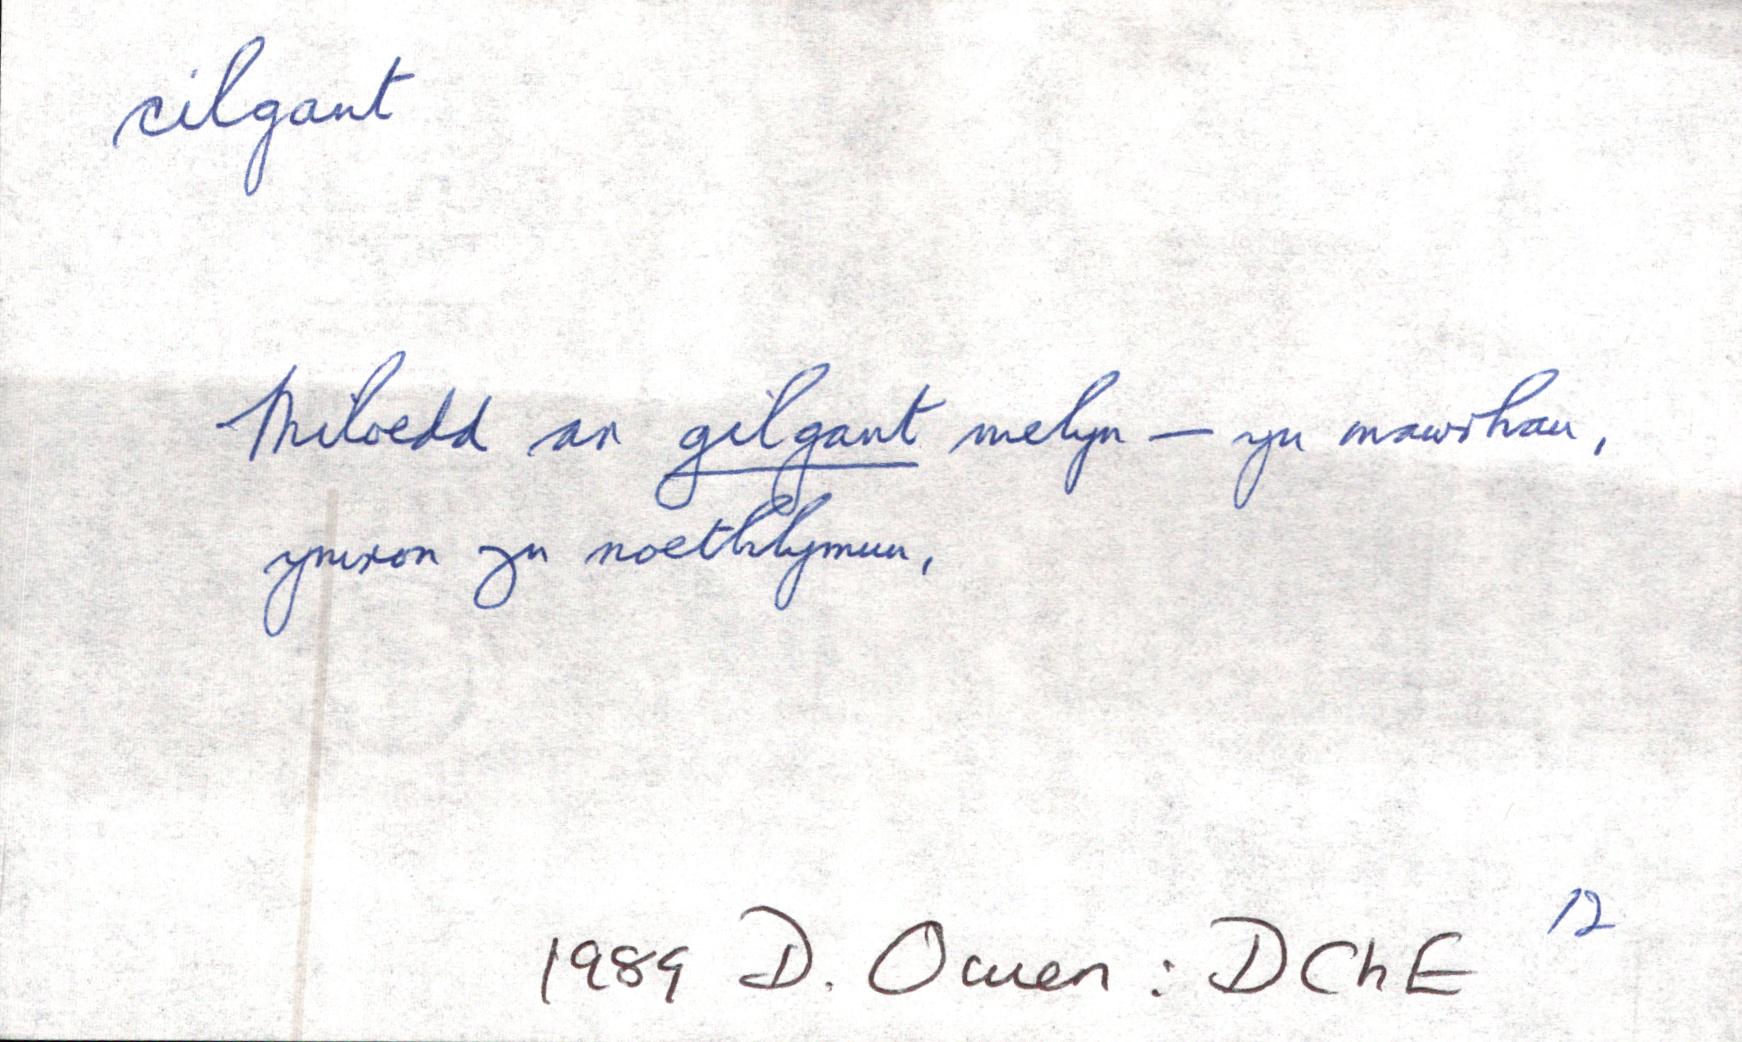 cilgant
Miloedd ar gilgant melyn — yn mawrhau,
ymron yn noethlymun,
12
1989 D. Owen : DChE